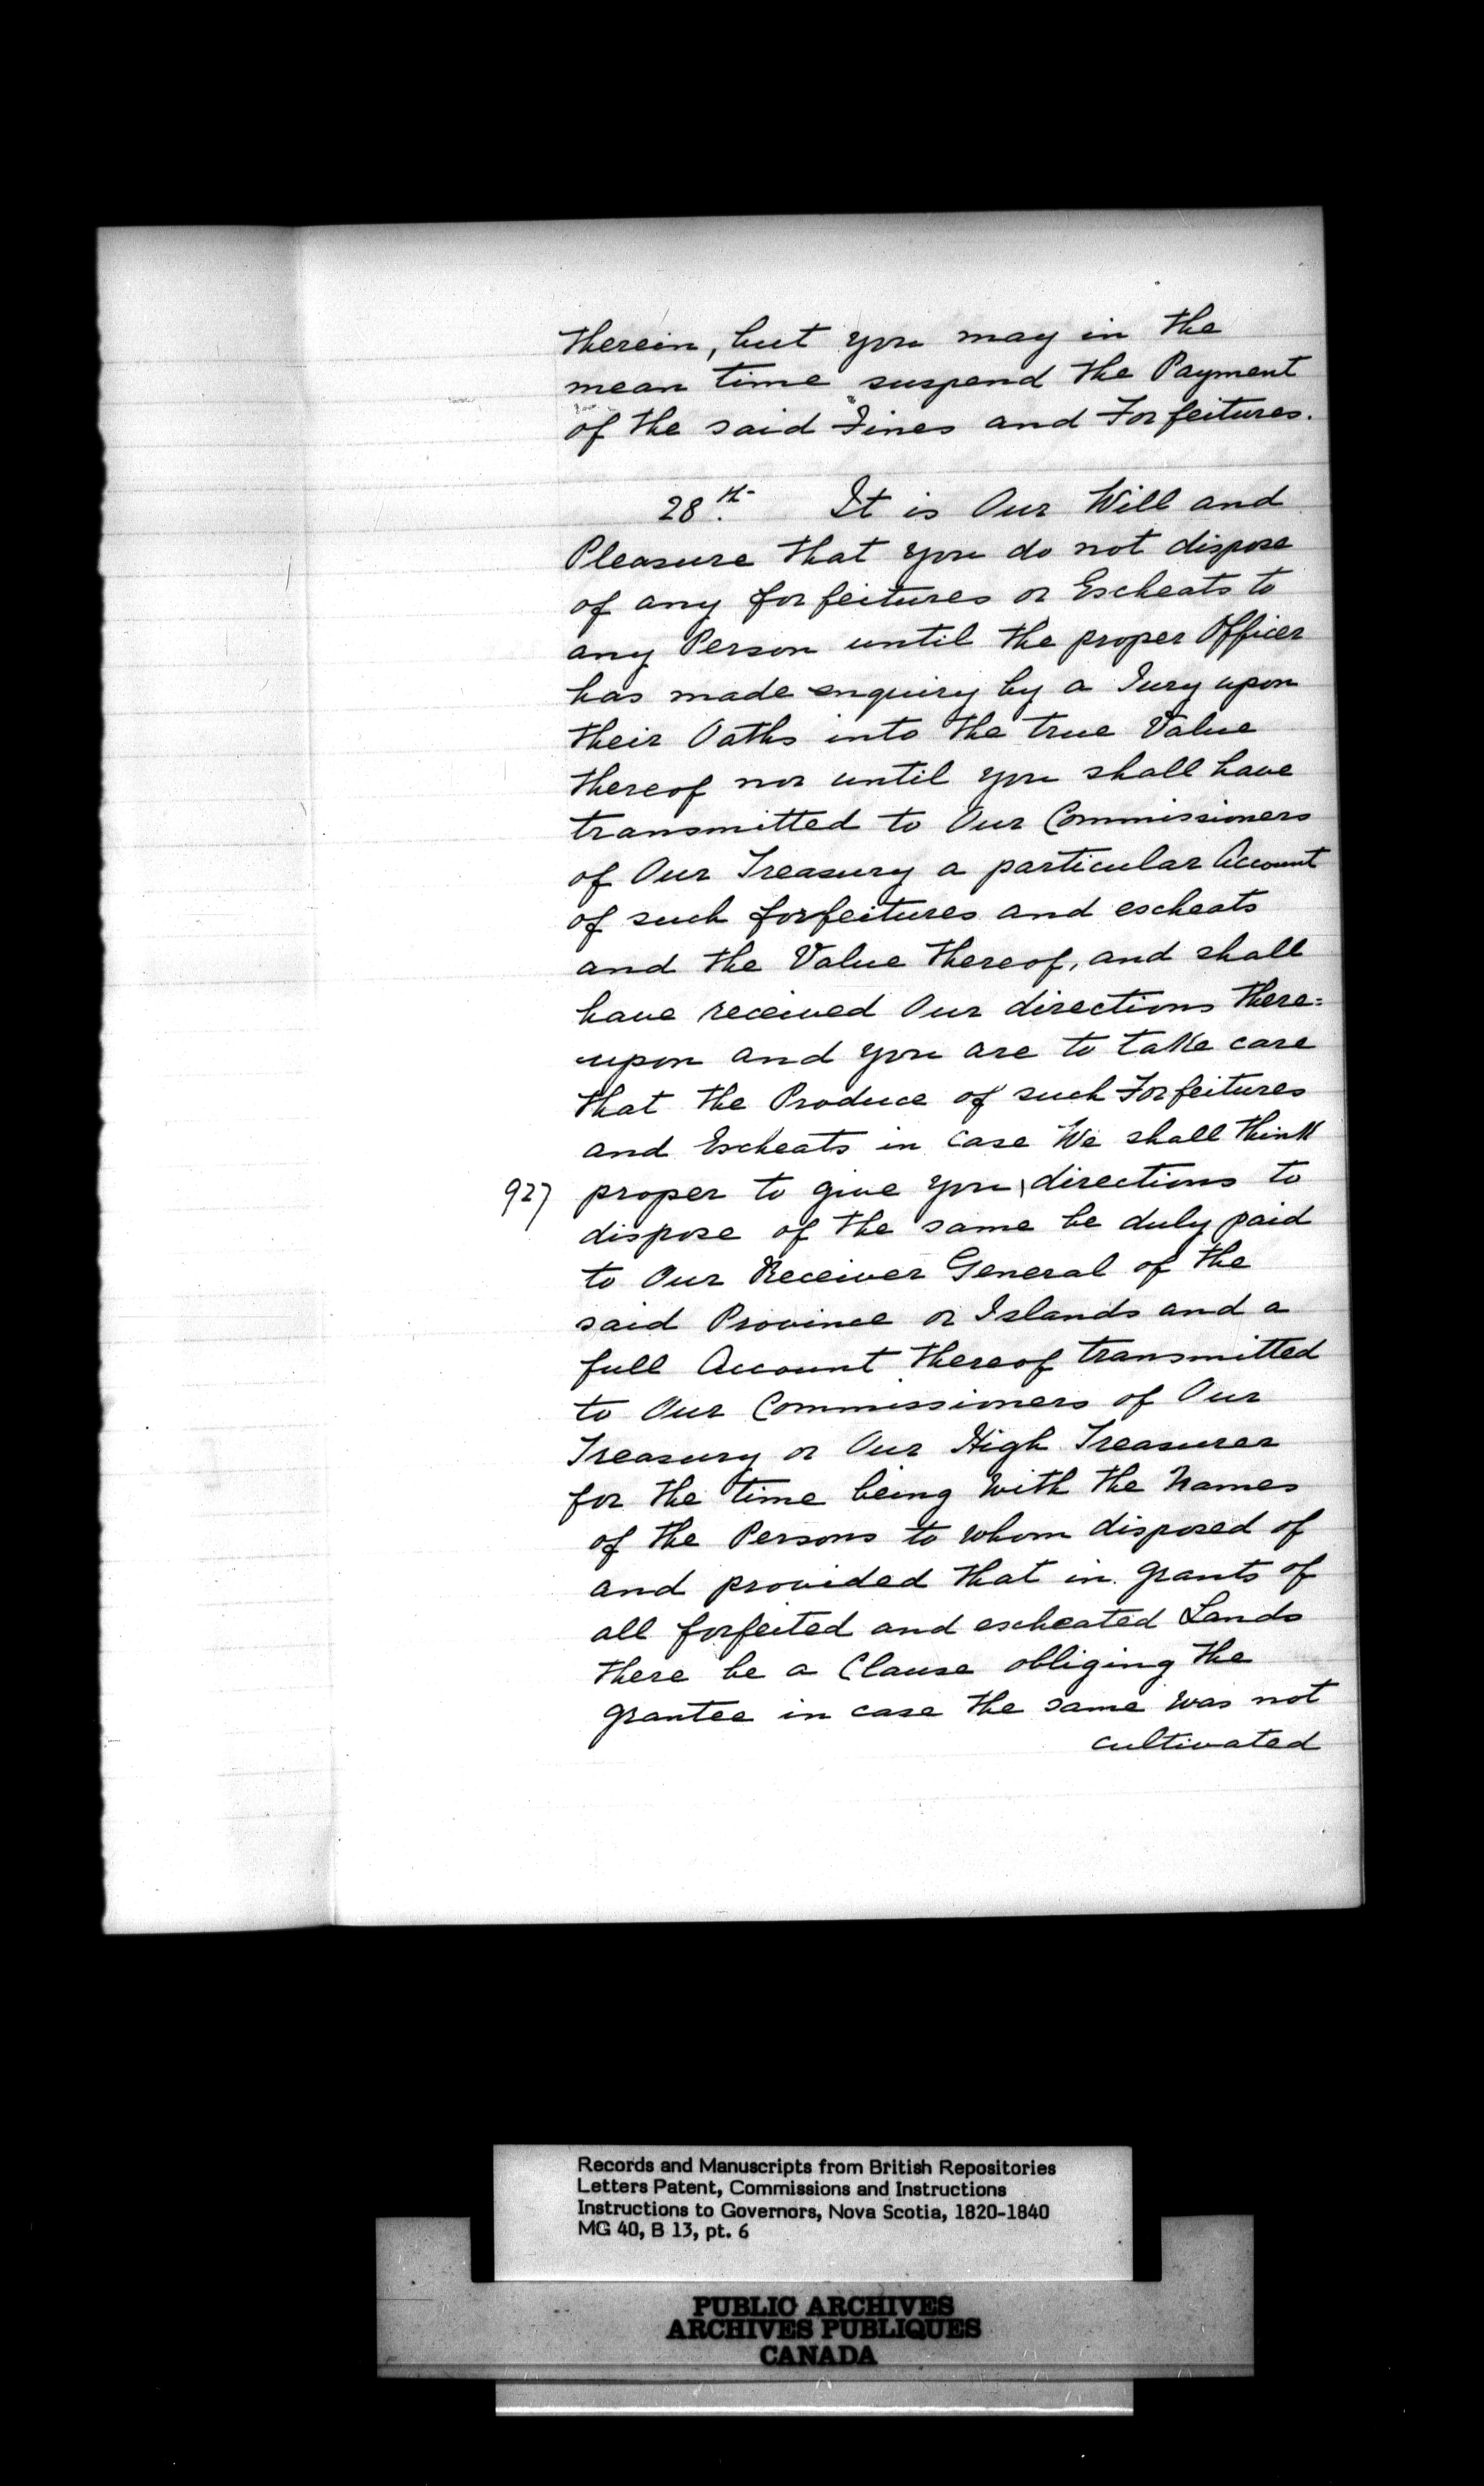 therein, but you may in the
mean time suspend the Payment
of the said Fines and Forfeitures.
28th. It is Our Will and
Pleasure that you do not dispose
of any forfeitures or Escheats to
any Person until the proper Officer
has made enquiry by a Jury upon
their Oaths into the true Value
thereof nor until you shall have
transmitted to Our Commissioners
of Our Treasury a particular Account
of such forfeitures and escheats
and the Value thereof, and shall
have received Our directions there=
upon and you are to take care
that the Produce of such Forfeitures
and Escheats in case We shall think
927 proper to give you \ directions to
dispose of the same be duly paid
to Our Receiver General of the
said Province or Islands and a
full Account thereof transmitted
to Our Commissioners of Our
Treasury or Our High Treasurer
for the time being with the Names
of the Persons to whom disposed of
and provided that in grants of
all forfeited and escheated Lands
there be a Clause obliging the
grantee in case the same was not
cultivated
Records and Manuscripts from British Repositories
Letters Patent, Commissions and Instructions
Instructions to Governors, Nova Scotia, 1820-1840
MG 40, B 13, pt. 6
PUBLIC ARCHIVES
ARCHIVES PUBLIQUES
CANADA